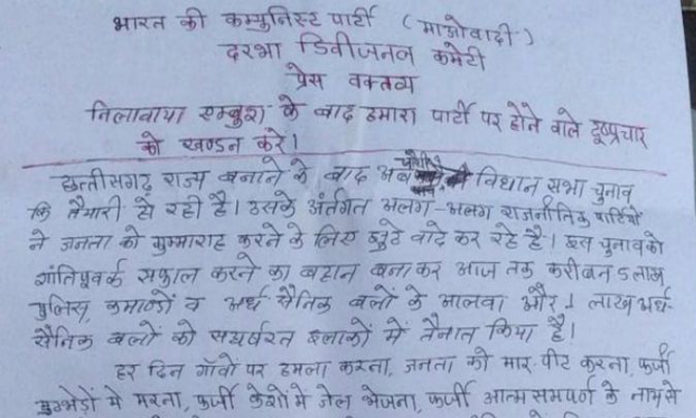 भारत की कम्युनिस्ट पार्टी (माओवादी)
दरभा डिवीजनल कमेटी
प्रेस वक्तव्य
निलावाया एम्बुश के बाद हमारा पार्टी पर होने वाले दूष्प्रचार
को खण्डन करे।
छत्तीसगढ़ राज्य बनाने के बाद अब चौथी विधान सभा चुनाव
कि तैयारी हो रही है। उसके अंतर्गत अलग-अलग राजनीतिक पार्टियों
ने जनता को गुम्माराह करने के लिए झुटे वादे कर रहे है। इस चुनाव को
शांतिपूवर्क सफाल करने का बहान बना कर आज तक करीबन 5 लाख
पुलिस, कमाण्डों व अर्ध सैनिक बलों के आलवा और 1 लाख अर्ध-
सैनिक बलों को संघर्षरत इलाकों में तैनात किया है।
हर दिन गाँवों पर हमला करना, जनता को मार-पीट करना, फर्जी
मुठभेड़ों मे मरना, फर्जी केशों मे जेल भेजना, फर्जी आत्म समपर्ण के नाम से